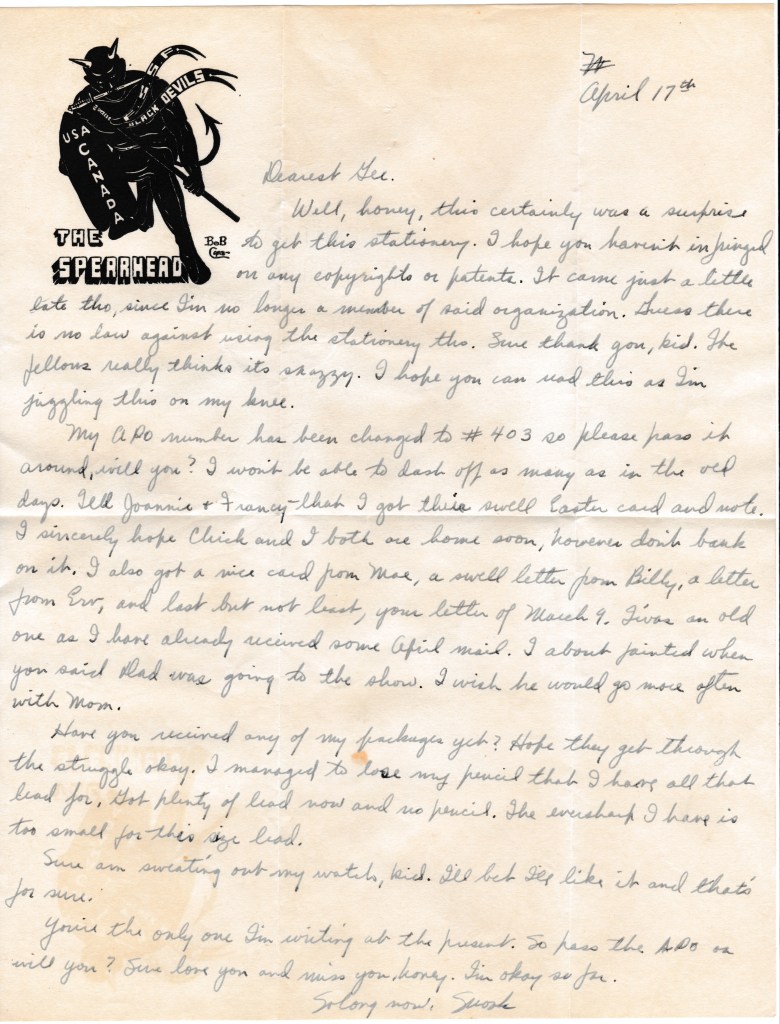 F S S F
BLACK DEVILS
USA
CANADA
THE
SPEARHEAD
BOB
April 17th
Dearest Gee.
Well, honey, this certainly was a surprise
to get this stationery. I hope you haven't inpinged
on any copyrights or patents. It came just a little
late tho, since I'm no longer a member of said organization. Guess there
is no law against using the stationery tho. Sure thank you, kid. The
fellows really thinks its snazzy. I hope you can read this as I'm
juggling this on my knee.
My APO number has been changed to # 403 so please pass it
around, will you? I won't be able to dash off as many as in the old
days. Tell Joannie & Francy that I got their swell Easter card and note.
I sincerely hope Chick and I both are home soon, however don't bank
on it. I also got a nice card from Mae, a swell letter from Billy, a letter
from Erv, and last but not least, your letter of March 9. Twas an old
one as I have already received some April mail. I about fainted when
you said Dad was going to the show. I wish he would go more often
with Mom.
Have you received any of my packages yet? Hope they get through
the struggle okay. I managed to lose my pencil that I have all that
lead for. Got plenty of lead now and no pencil. The eversharp I have is
too small for this size lead.
Sure am sweating out my watch, kid. I'll bet I'll like it and that's
for sure.
You're the only one I'm writing at the present. So pass the APO on
will you? Sure love you and miss you, honey. I'm okay so far.
So long now,